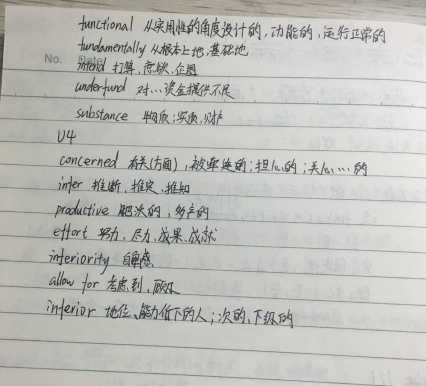 functional 从实用性的角度设计的,功能的,运行正常的
fundamentally 从根本上地,基础地
No.
intend 打算,意欲,企图
underfund 对…资金提供不足
substance 物质;实质,财产
U4
concerned 有关(方面),被牵连的;担心的;关心…的
infer 推断,推定,推知
productive 肥沃的,多产的
effort 努力,尽力,成果,成就
inferiority 自卑感
allow for 考虑到,顾及
inferior 地位、能力低下的人;次的,下级的